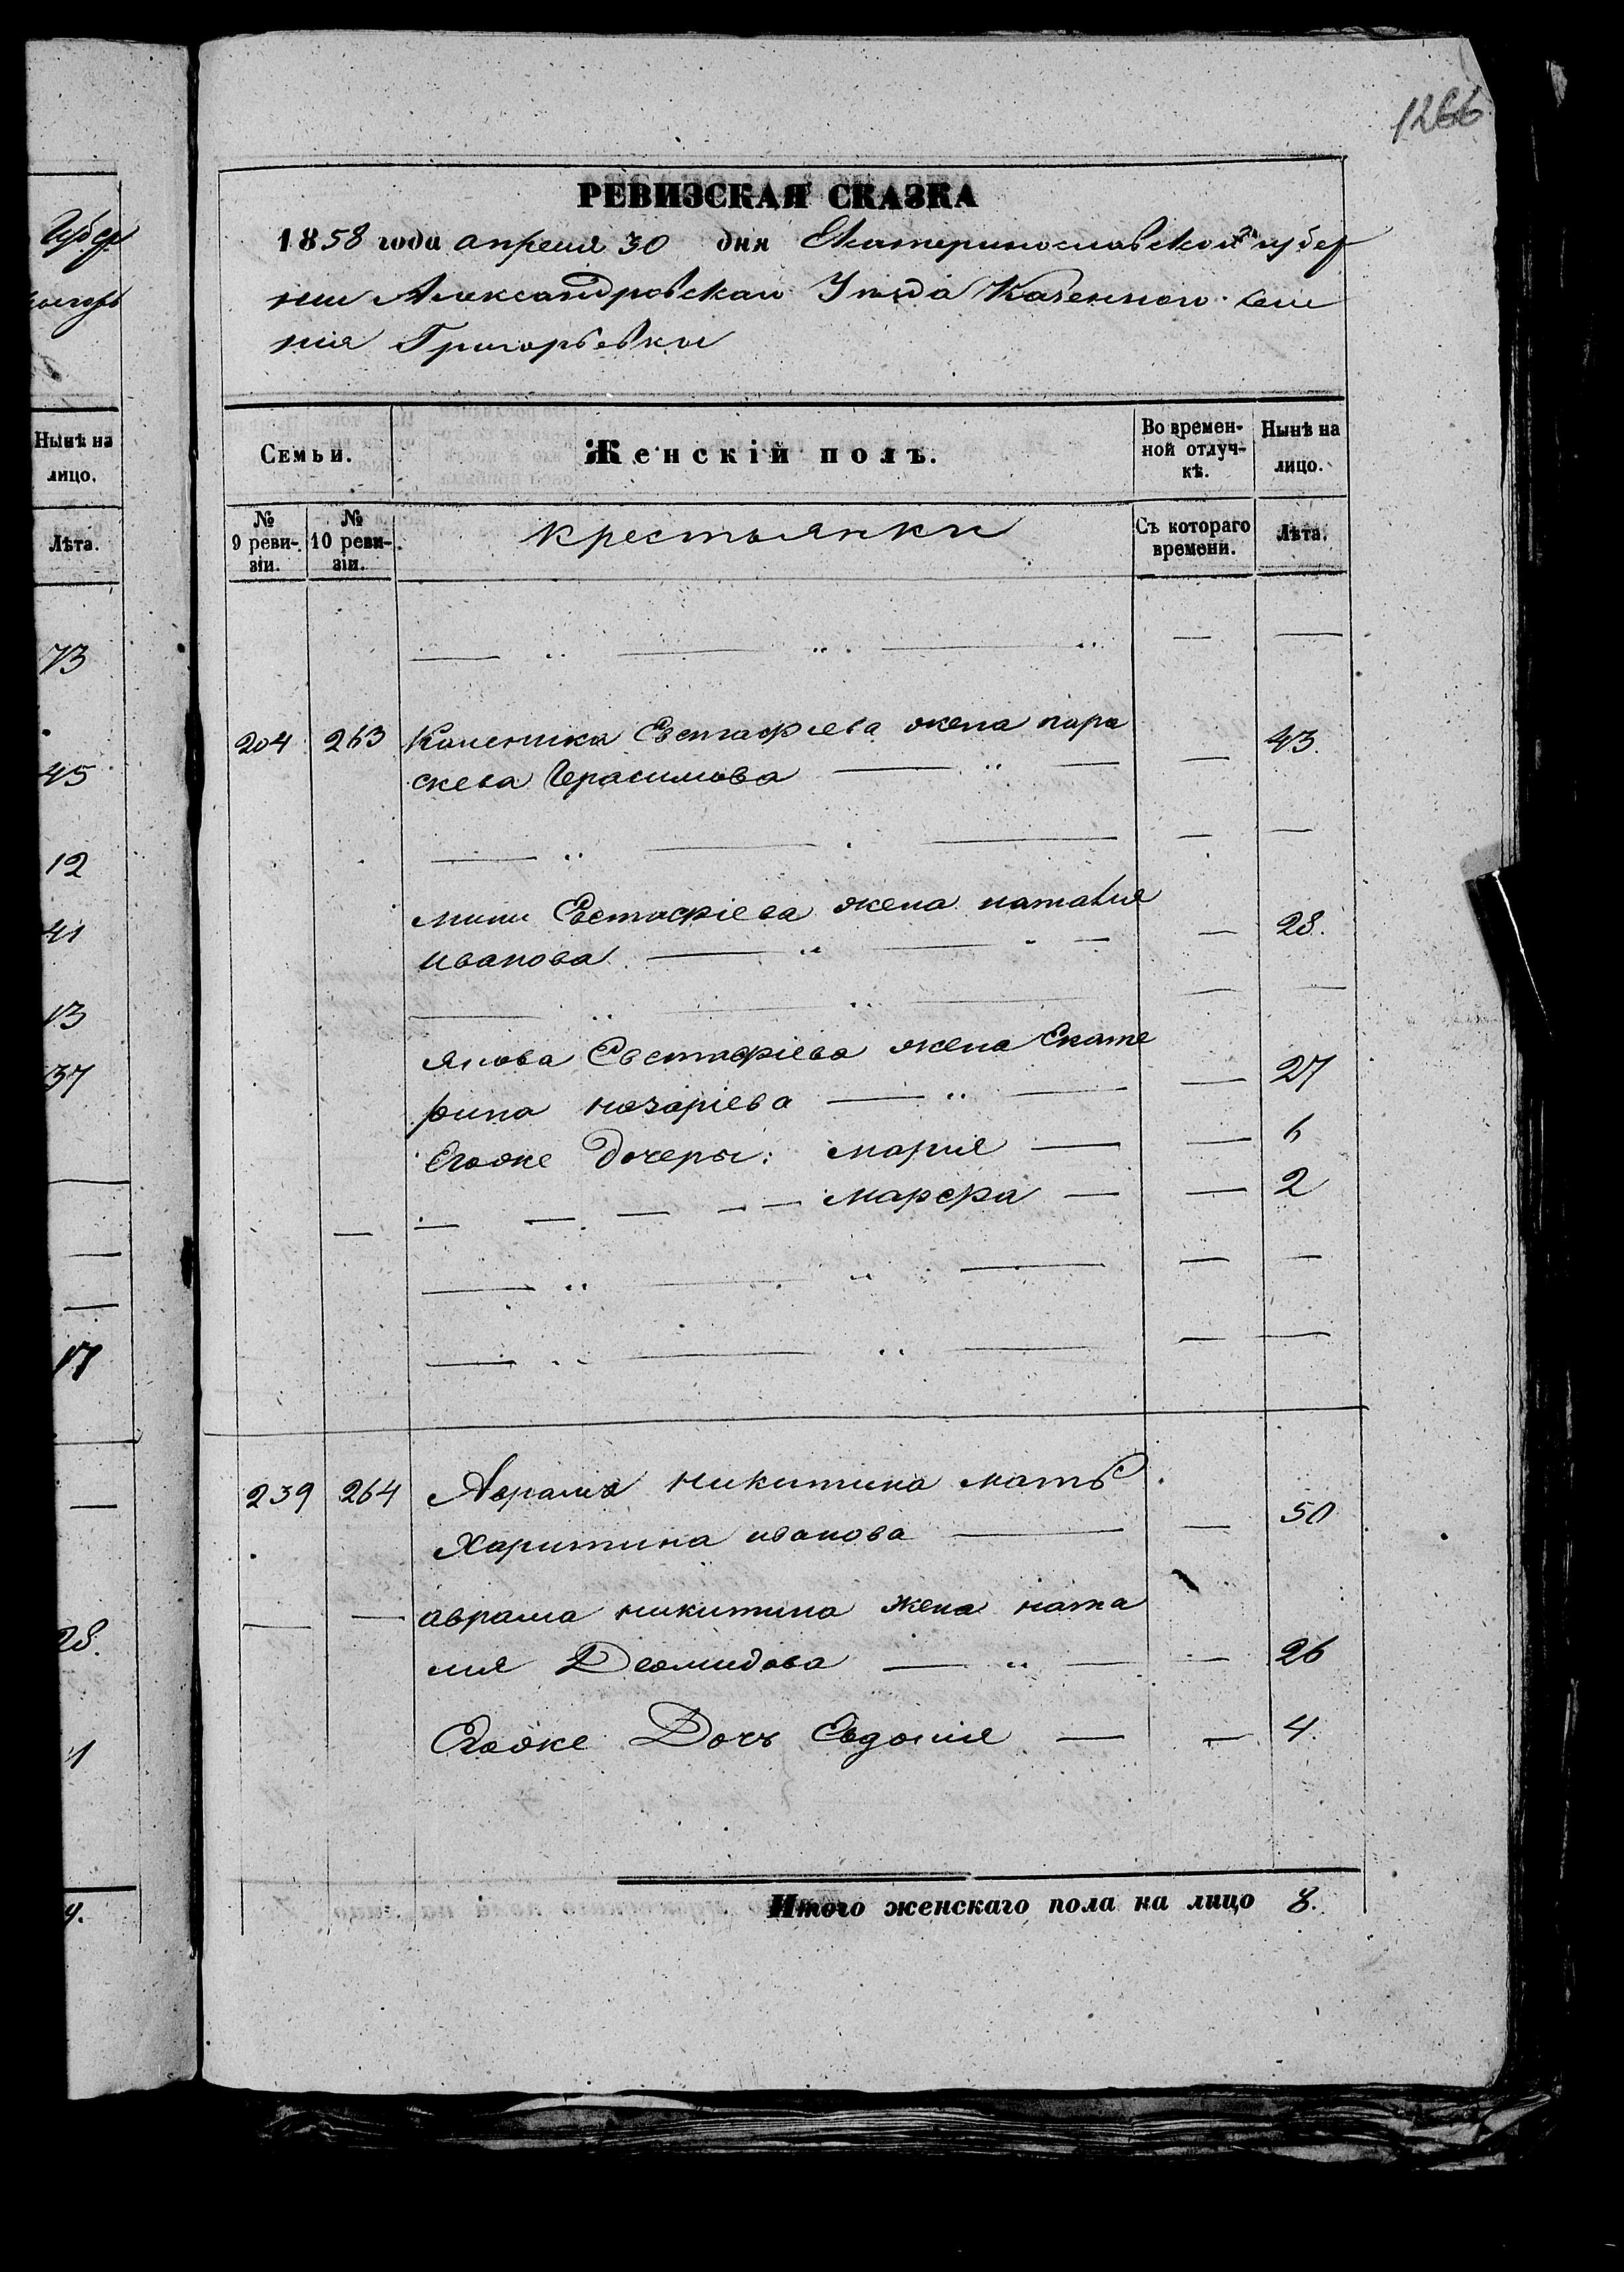 1266
Губер
Нынѣ на
лицо.
Лѣта.
73
45
12
41
13
37
17
28.
РЕВИЗСКАЯ СКАЗКА
1858 года апреля 30 дня Екатеринославской губер
нии Александровскаго Уезда Казенного селе
ния Григорьевки
Семьи.
Женскій полъ.
Во времен-
ной отлуч-
кѣ.
Нынѣ на
лицо.
№
9 реви-
зіи.
№
10 реви-
зіи.
крестьянки
Съ котораго
времени.
Лѣта.
204 263 Каленика Евстафиева жена пара
скева Герасимова 43.
Евстафіева жена наталия
иванова 28.
якова Евстафіева жена Екате
рина назаріева 27
Егоже дочеры: мария 6
марфа 2
239 264 Аврама никитина мать
Харитина иванова 50
аврама никитина жена ната
лия Деомидова 26
Егоже Дочь Евдокия 4.
Итого женскаго пола на лицо 8.